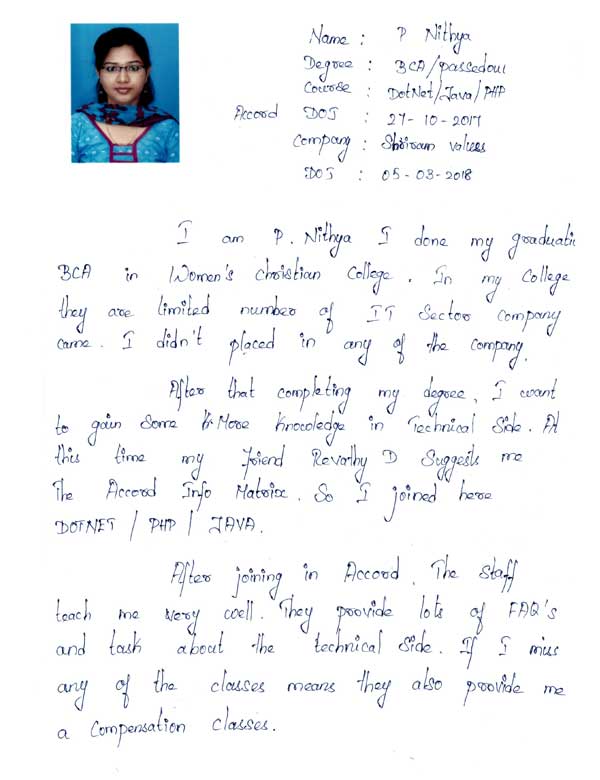 Name : P Nithya
Degree : BCA/passedout
Course : DotNet/Java/PHP
Accord DOJ : 27-10-2017
Company : Shriram values
DOJ : 05-03-2018
I am P. Nithya I done my graduati
BCA in Women's christian College. In my College
they are limited number of IT Sector Company
came. I didn't placed in any of the company.
After that completing my degree, I want
to gain Some More Knowledge in Technical Side. At
this time my friend Revathy D Suggests me
The Accord Info Matrix. So I joined here
DOTNET / PHP / JAVA.
After joining in Accord. The staff
teach me very well. They provide lots of FAQ's
and task about the technical Side. If I miss
any of the classes means they also provide me
a Compensation classes.